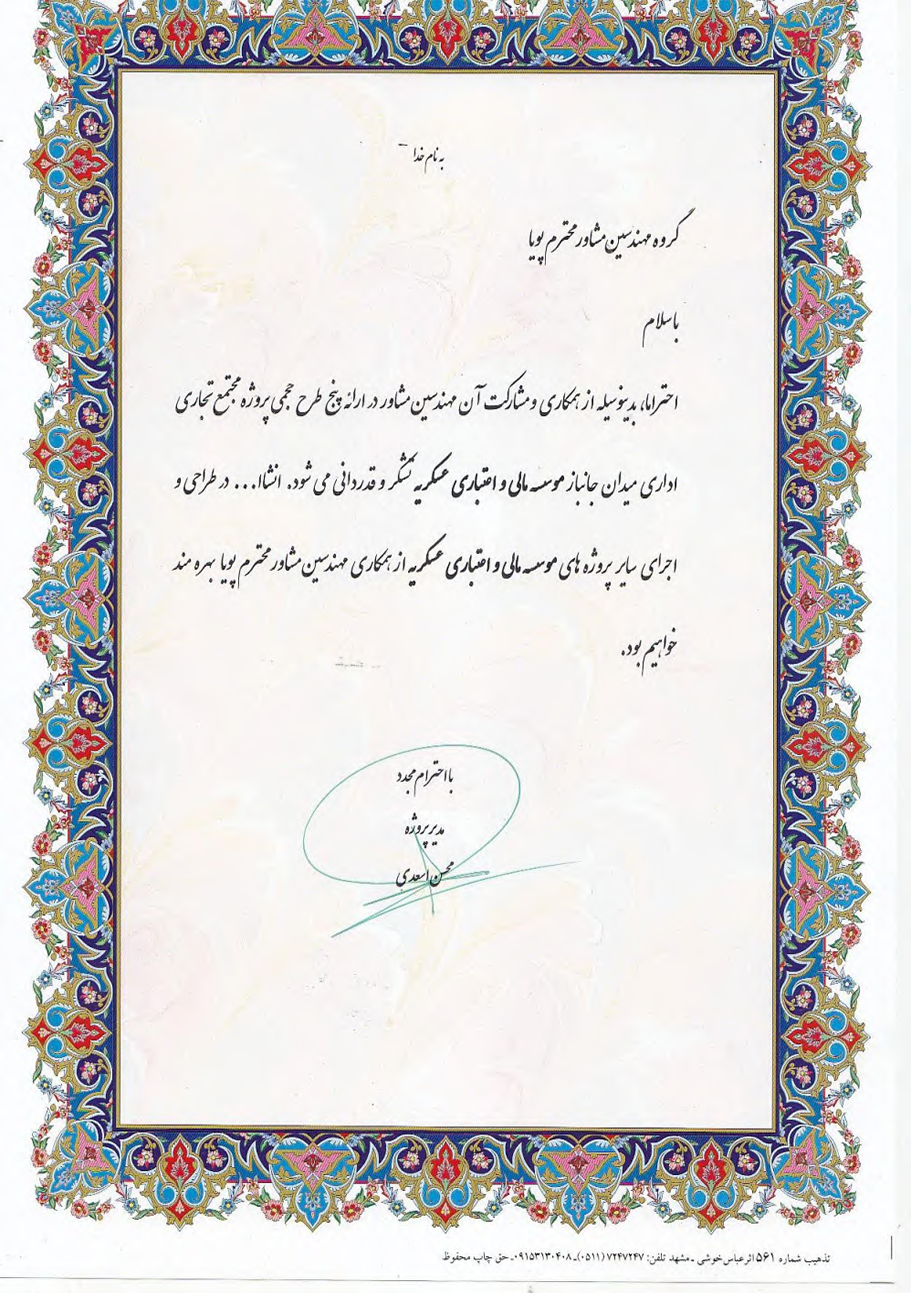 به نام خدا
گروه مهندسین مشاور محترم پویا
باسلام
احتراما، بدینوسیله از همکاری و مشارکت آن مهندسین مشاور در ارائه پنج طرح حجمی پروژه مجتمع تجاری
اداری میدان جانباز موسسه مالی و اعتباری عسکریه تشکر و قدردانی می شود. انشاا... در طراحی و
اجرای سایر پروژه های موسسه مالی و اعتباری عسکریه از همکاری مهندسین مشاور محترم پویا بهره مند
خواهیم بود.
با احترام مجدد
مدیر پروژه
محسن اسعدی
تذهیب شماره ۵۶۱ اثر عباس خوشی - مشهد تلفن: ۷۲۴۷۲۴۷ (۰۵۱۱)-۰۹۱۵۳۱۳۰۴۰۸- حق چاپ محفوظ